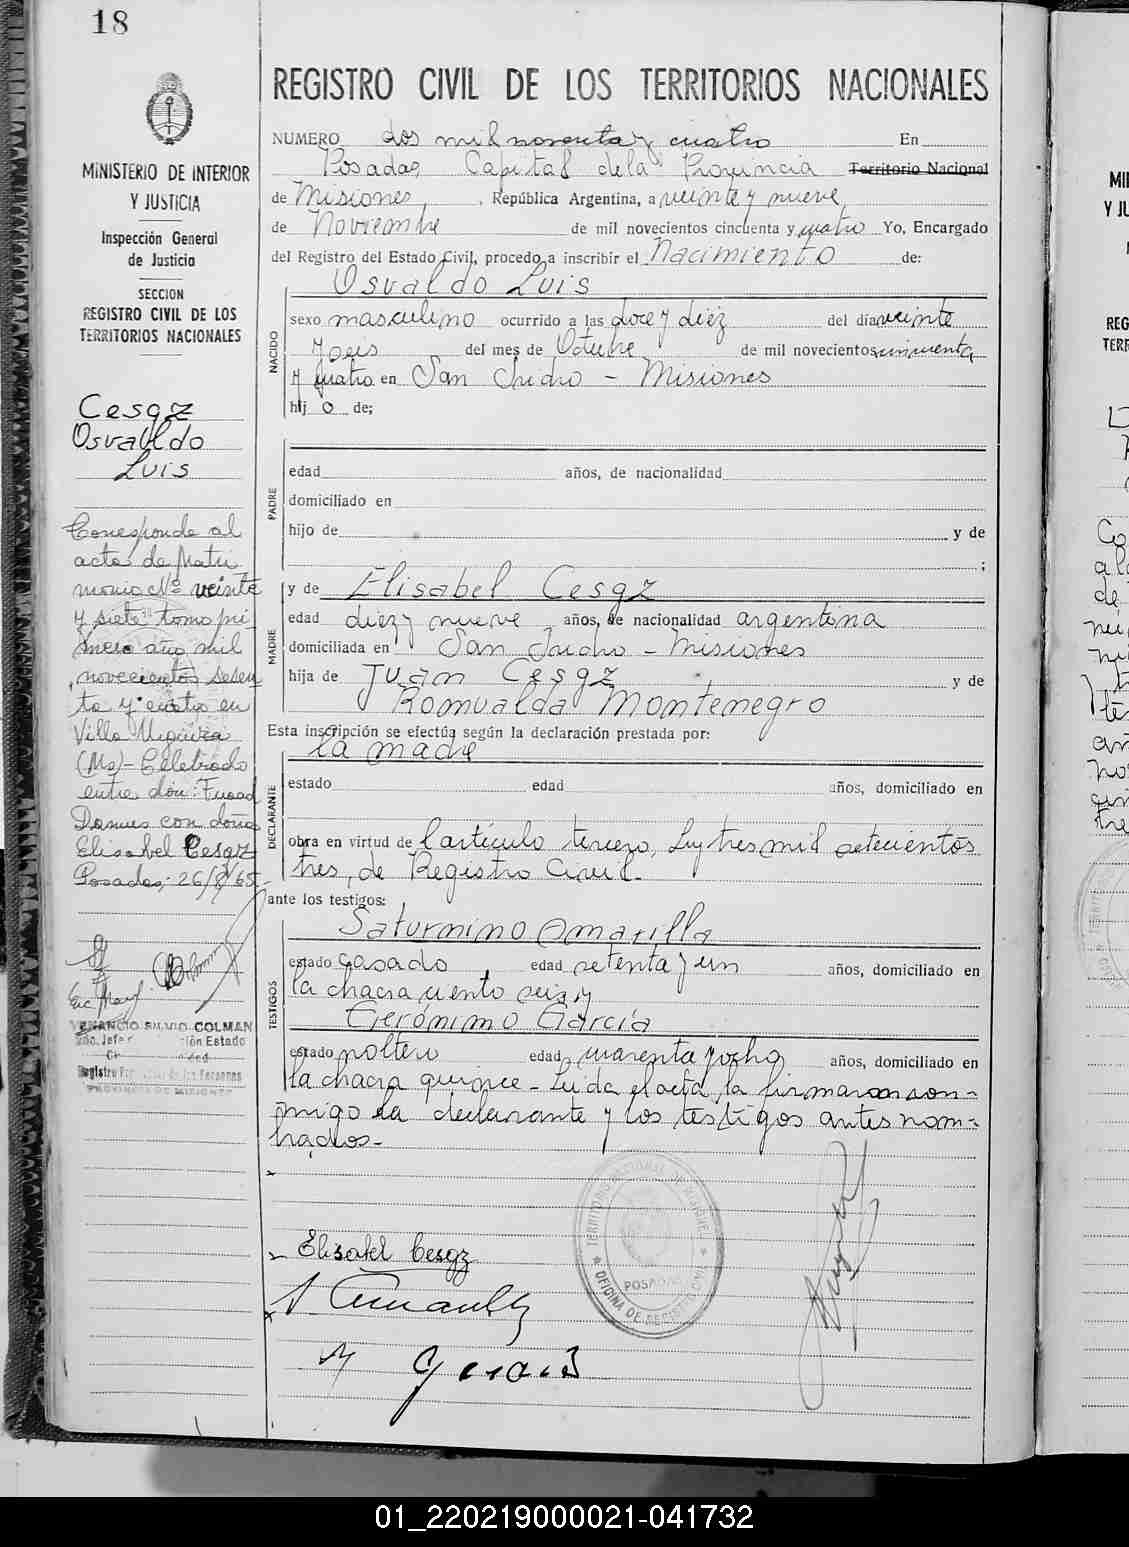 18
MINISTERIO DE INTERIOR
Y JUSTICIA
Inspección General
de Justicia
SECCION
REGISTRO CIVIL DE LOS
TERRITORIOS NACIONALES
Cesgz
Osvaldo
Luis
Corresponde al
acta de Matri
monio Nº veinte
y siete tomo pri
mero año mil
novecientos sesen
ta y cuatro en
Villa
(Ms) - Celebrado
entre don:
con doña
Elisabel Cesgz
Posadas, 26/8/65
VENANCIO SILVIO COLMAN
REGISTRO CIVIL DE LOS TERRITORIOS NACIONALES
NUMERO dos mil noventa y cuatro En
Posadas, Capital de la Provincia Territorio Nacional
de Misiones, República Argentina, a veinte y nueve
de Noviembre de mil novecientos cincuenta y cuatro Yo, Encargado
del Registro del Estado Civil, procedo a inscribir el Nacimiento de:
NACIDO
Osvaldo Luis
sexo masculino ocurrido a las doce y diez del día veinte
y seis del mes de Octubre de mil novecientos cincuenta
y cuatro en San Isidro - Misiones
hijo de;
PADRE
edad años, de nacionalidad
domiciliado en
hijo de y de
;
MADRE
y de Elisabel Cesgz
edad diez y nueve años, de nacionalidad argentina
domiciliada en San Isidro - Misiones
hija de Juan Cesgz y de
Romualda Montenegro
Esta inscripción se efectúa según la declaración prestada por:
DECLARANTE
la madre
estado edad años, domiciliado en
obra en virtud de l artículo tercero, Ley tres mil setecientos
tres, de Registro Civil.
ante los testigos:
TESTIGOS
Saturnino Amarilla
estado casado, edad setenta y un años, domiciliado en
la chacra ciento seis y
Gerónimo García
estado soltero edad cuarenta y ocho años, domiciliado en
la chacra quince - Leída el acta, la firmaron con-
migo la declarante y los testigos antes nom-
brados.-
Elisabel Cesgz
TERRITORIO NACIONAL DE MISIONES
POSADAS
OFICINA DE REGISTRO CIVIL
01_220219000021-041732